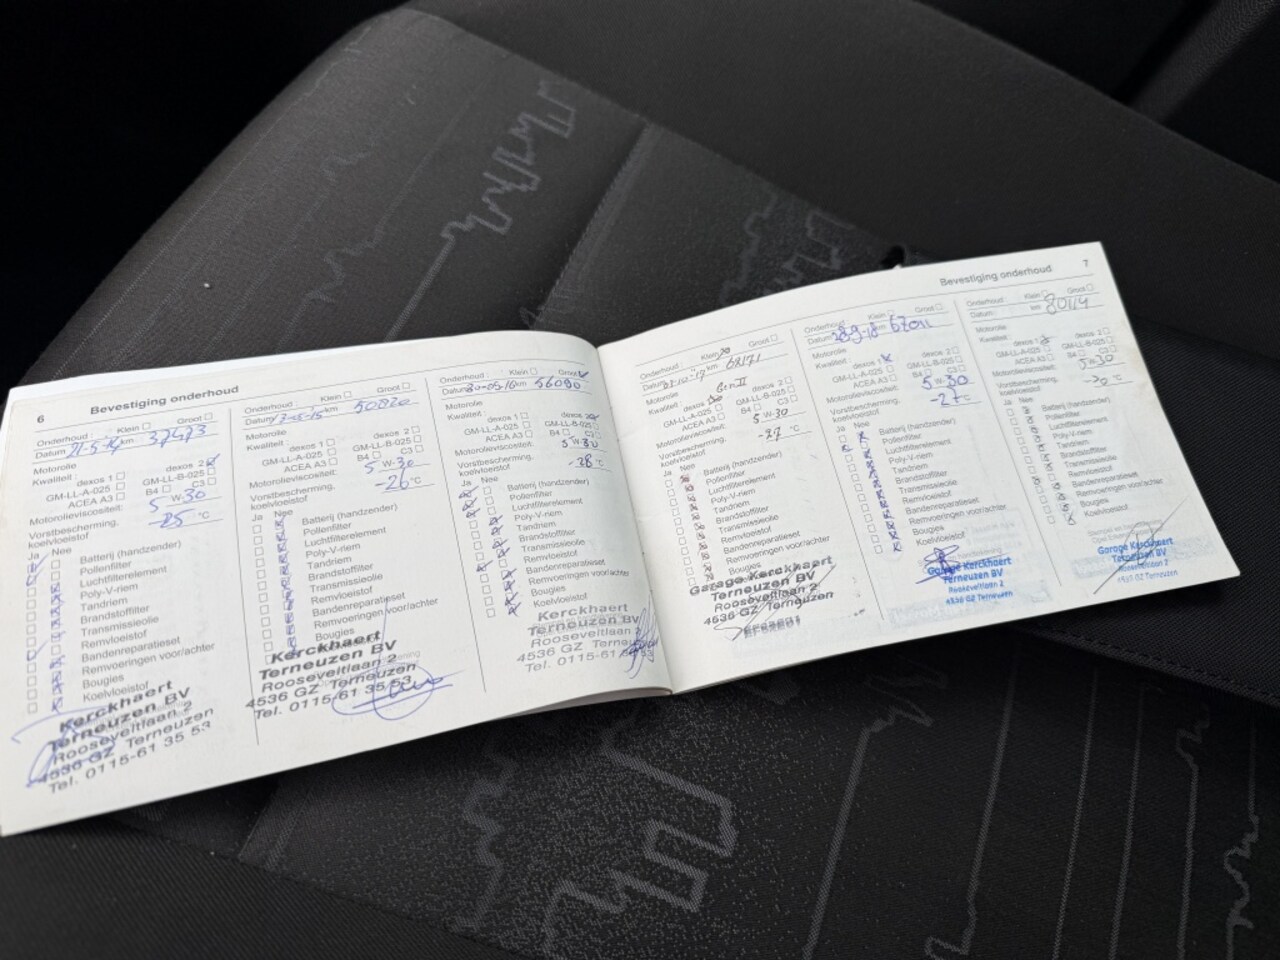 6 Bevestiging onderhoud
Onderhoud : Klein Groot
Datum km 37473
Motorolie
Kwaliteit : dexos 1 dexos 2
GM-LL-A-025 GM-LL-B-025
ACEA A3 B4 C3
Motorolieviscositeit: 5 W-30
Vorstbescherming,
koelvloeistof -25 °C
Ja Nee
Batterij (handzender)
Pollenfilter
Luchtfilterelement
Poly-V-riem
Tandriem
Brandstoffilter
Transmissieolie
Remvloeistof
Bandenreparatieset
Remvoeringen voor/achter
Bougies
Koelvloeistof
Kerckhaert
Terneuzen BV
Rooseveltlaan 2
4536 GZ Terneuzen
Tel. 0115-61 35 53
Onderhoud : Klein Groot
Datum km 50820
Motorolie
Kwaliteit : dexos 1 dexos 2
GM-LL-A-025 GM-LL-B-025
ACEA A3 B4 C3
Motorolieviscositeit: 5 W-30
Vorstbescherming,
koelvloeistof -26 °C
Ja Nee
Batterij (handzender)
Pollenfilter
Luchtfilterelement
Poly-V-riem
Tandriem
Brandstoffilter
Transmissieolie
Remvloeistof
Bandenreparatieset
Remvoeringen voor/achter
Bougies
Kerckhaert
Terneuzen BV
Rooseveltlaan 2
4536 GZ Terneuzen
Tel. 0115-61 35 53
Onderhoud : Klein Groot
Datum 30-05-16 km 56090
Motorolie
Kwaliteit : dexos 1 dexos 2
GM-LL-A-025 GM-LL-B-025
ACEA A3 B4 C3
Motorolieviscositeit: 5 W-30
Vorstbescherming,
koelvloeistof -28 °C
Ja Nee
Batterij (handzender)
Pollenfilter
Luchtfilterelement
Poly-V-riem
Tandriem
Brandstoffilter
Transmissieolie
Remvloeistof
Bandenreparatieset
Remvoeringen voor/achter
Bougies
Koelvloeistof
Kerckhaert
Terneuzen BV
Rooseveltlaan 2
4536 GZ Terneuzen
Tel. 0115-61
Bevestiging onderhoud 7
Onderhoud : Klein Groot
Datum km
Motorolie Gen II
Kwaliteit : dexos 2
GM-LL-A-025 GM-LL-B-025
ACEA A3 B4 C3
Motorolieviscositeit: 5 W-30
Vorstbescherming,
koelvloeistof -27 °C
Ja Nee
Batterij (handzender)
Pollenfilter
Luchtfilterelement
Poly-V-riem
Tandriem
Brandstoffilter
Transmissieolie
Remvloeistof
Bandenreparatieset
Remvoeringen voor/achter
Bougies
Garage Kerckhaert
Terneuzen BV
Rooseveltlaan 2
4536 GZ Terneuzen
Onderhoud : Klein Groot
Datum 28-9-18 km 67011
Motorolie
Kwaliteit : dexos 1 dexos 2
GM-LL-A-025 GM-LL-B-025
ACEA A3 B4 C3
Motorolieviscositeit: 5 W-30
Vorstbescherming,
koelvloeistof -27 °C
Ja Nee
Batterij (handzender)
Pollenfilter
Luchtfilterelement
Poly-V-riem
Tandriem
Brandstoffilter
Transmissieolie
Remvloeistof
Bandenreparatieset
Remvoeringen voor/achter
Bougies
Koelvloeistof
Garage Kerckhaert
Terneuzen BV
Rooseveltlaan 2
4536 GZ Terneuzen
Onderhoud : Klein Groot
Datum : km 80114
Motorolie
Kwaliteit : dexos 1 dexos 2
GM-LL-A-025 GM-LL-B-025
ACEA A3 B4 C3
Motorolieviscositeit: 5W30
Vorstbescherming,
koelvloeistof °C
Ja Nee
Batterij (handzender)
Pollenfilter
Luchtfilterelement
Poly-V-riem
Tandriem
Brandstoffilter
Transmissieolie
Remvloeistof
Bandenreparatieset
Remvoeringen voor/achter
Bougies
Koelvloeistof
Garage Kerckhaert
Terneuzen BV
Rooseveltlaan 2
4536 GZ Terneuzen